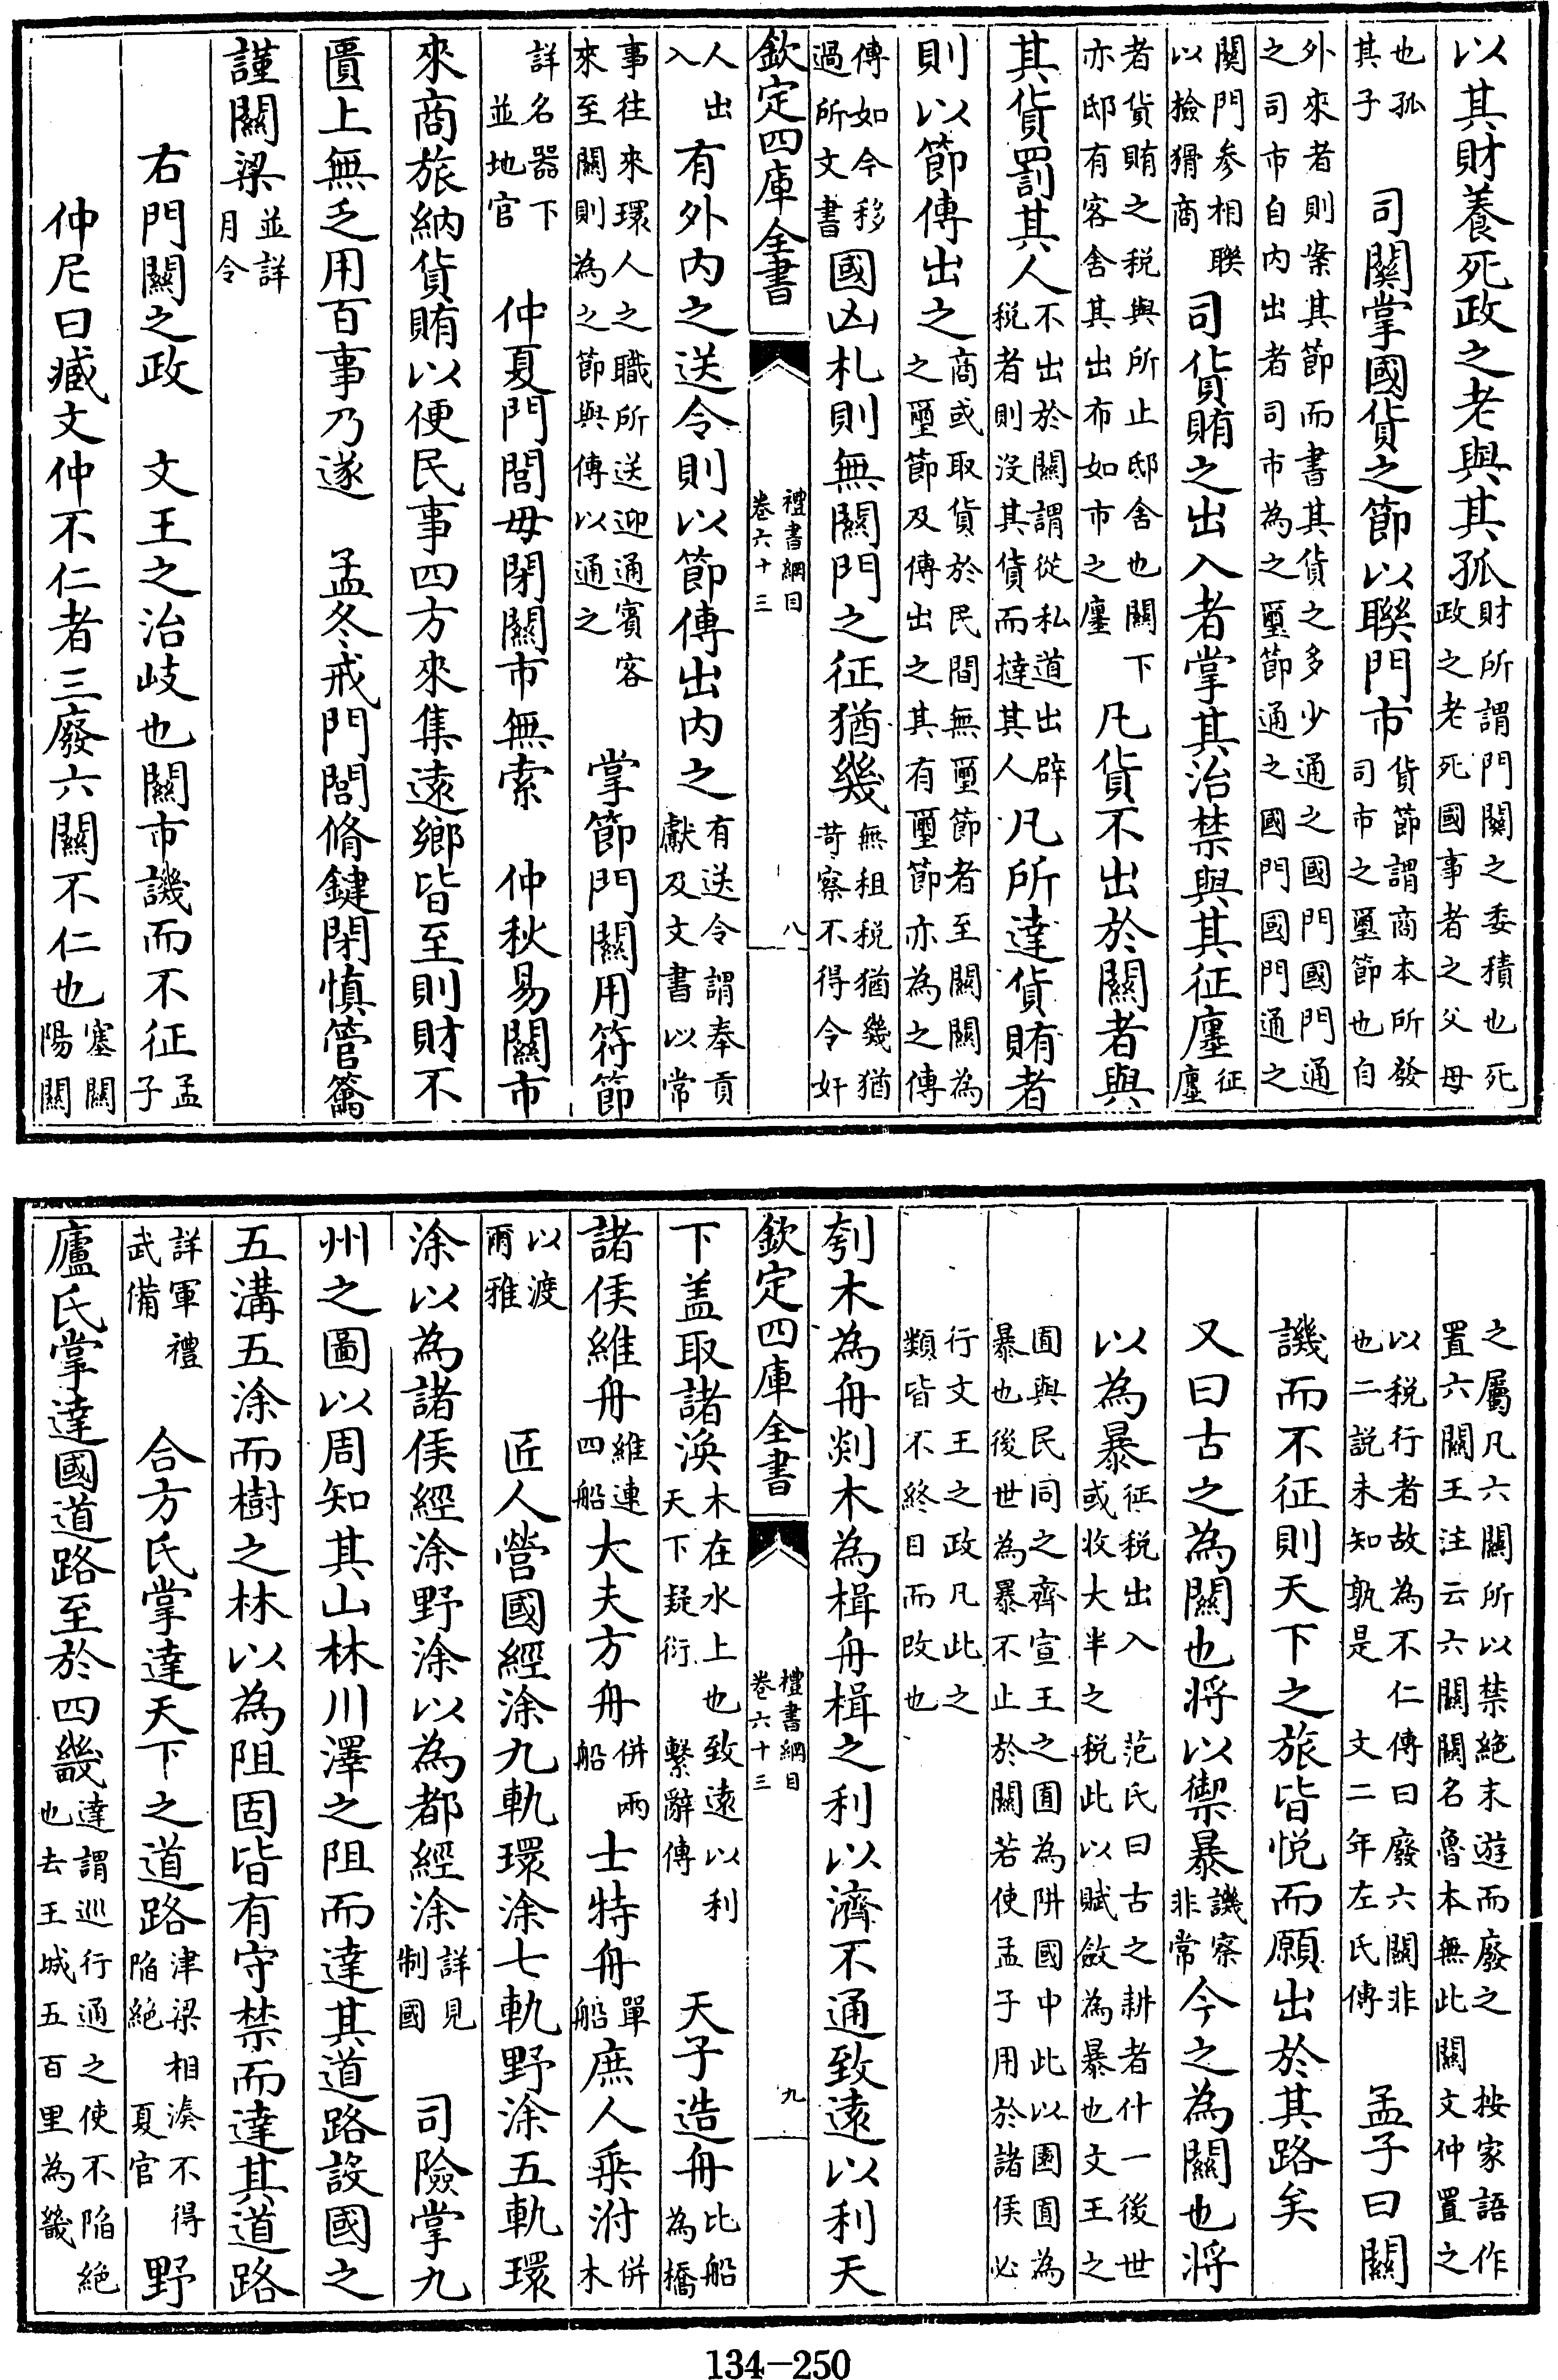 以其財養死政之老與其孤財所謂門關之委積也死政之老死國事者之父母
也孤其子　司關掌國貨之節以聯門市貨節謂商本所發司市之璽節也自
外來者則案其節而書其貨之多少通之國門國門通之司市自内出者司市為之璽節通之國門國門通之
關門參相聯以檢猾商　司貨賄之出入者掌其治禁與其征廛征廛
者貨賄之税與所止邸舍也關下亦邸有客舍其出布如市之廛　凡貨不出於關者與
其貨罰其人不出於關謂從私道出辟税者則没其貨而撻其人　凡所達貨賄者
則以節傳出之商或取貨於民間無璽節者至關關為之璽節及傳出之其有璽節亦為之傳
傳如今移過所文書　國凶札則無關門之征猶幾無租税猶幾猶苛察不得令奸
欽定四庫全書　禮書綱目　卷六十三　八
人出入　有外内之送令則以節傳出内之有送令謂奉貢獻及文書以常
事往來環人之職所送迎通賓客來至關則為之節與傳以通之　掌節門關用符節
詳名器下並地官　仲夏門閭毋閉關市無索　仲秋易關市
來商旅納貨賄以便民事四方來集遠鄉皆至則財不
匱上無乏用百事乃遂　孟冬戒門閭脩鍵閉慎管籥
謹關梁並詳月令
右門關之政　文王之治岐也關市譏而不征孟子
仲尼曰臧文仲不仁者三廢六關不仁也塞關陽關
之屬凡六關所以禁絕末遊而廢之　按家語作置六關王注云六關關名魯本無此關文仲置之
以税行者故為不仁傳曰廢六關非也二說未知孰是　文二年左氏傳　孟子曰關
譏而不征則天下之旅皆悅而願出於其路矣
又曰古之為關也將以禦暴譏察非常今之為關也將
以為暴征税出入或收大半之税　范氏曰古之耕者什一後世此以賦斂為暴也文王之
囿與民同之齊宣王之囿為阱國中此以園囿為暴也後世為暴不止於關若使孟子用於諸侯必
行文王之政凡此之類皆不終日而改也
刳木為舟剡木為楫舟楫之利以濟不通致遠以利天
欽定四庫全書　禮書綱目　卷六十三　九
下蓋取諸渙木在水上也致遠以利天下疑衍　繫辭傳　天子造舟比船為橋
諸侯維舟維連四船大夫方舟併兩船士特舟單船庶人乘泭併木
以渡　爾雅　匠人營國經涂九軌環涂七軌野涂五軌環
涂以為諸侯經涂野涂以為都經涂詳見制國　司險掌九
州之圖以周知其山林川澤之阻而達其道路設國之
五溝五涂而樹之林以為阻固皆有守禁而達其道路
詳軍禮武備　合方氏掌達天下之道路津梁相湊不得陷絕　夏官　野
廬氏掌達國道路至於四畿達謂巡行通之使不陷絕也去王城五百里為畿
134-250